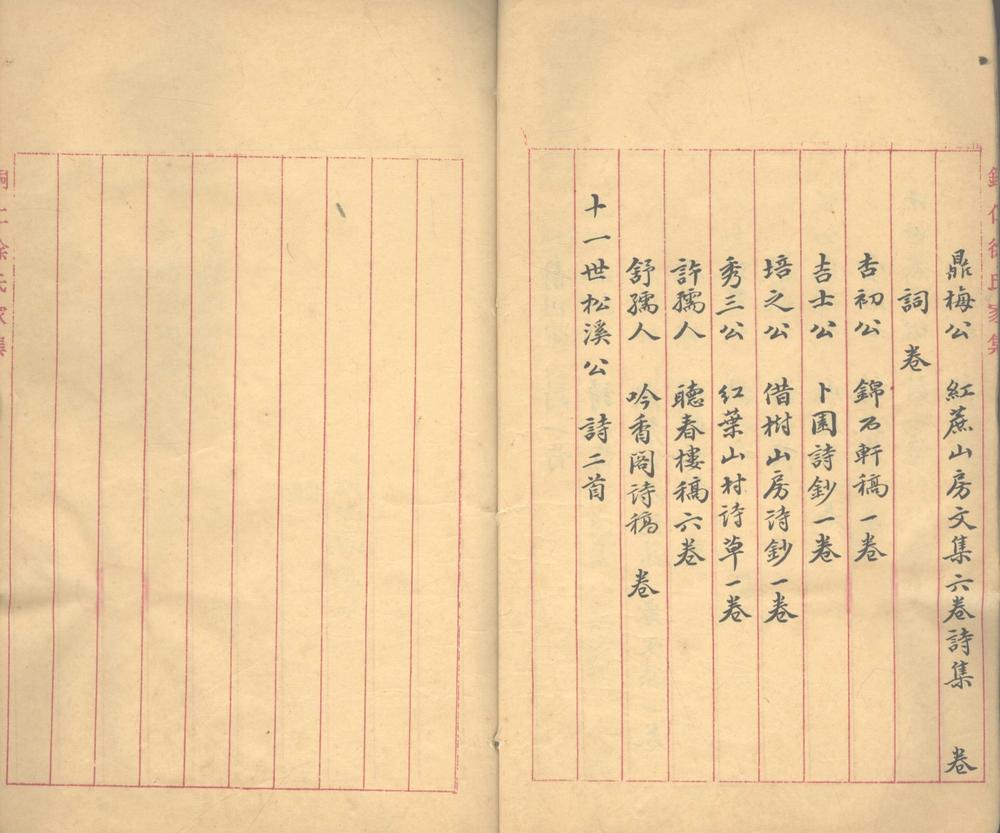 鼎梅公 紅蔗山房文集六卷詩集 卷
詞 卷
杏初公 錦石軒稿一卷
吉士公 卜園詩鈔一卷
培之公 借樹山房诗鈔一卷
秀三公 红葉山村诗草一卷
許孺人 聽春樓稿六卷
舒孺人 吟香阁诗稿 卷
十一世松溪公 詩二首
銅仁徐氏家集